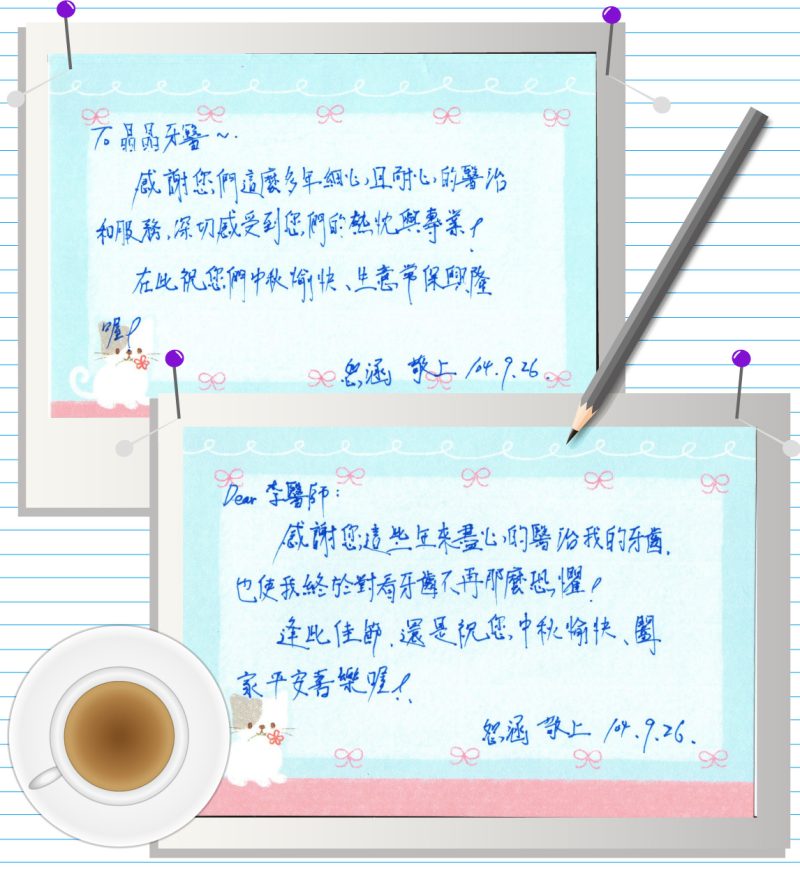 To 晶晶牙醫~.
感謝您們這麼多年細心且耐心的醫治
和服務,深切感受到您們的熱忱與專業!
在此祝您們中秋愉快、生意常保興隆
喔!
涵 敬上 104.9.26.
Dear 李醫師:
感謝您這些年來盡心的醫治我的牙齒,
也使我終於對看牙齒不再那麼恐懼!
逢此佳節,還是祝您中秋愉快、闔
家平安喜樂喔!
涵 敬上 104.9.26.